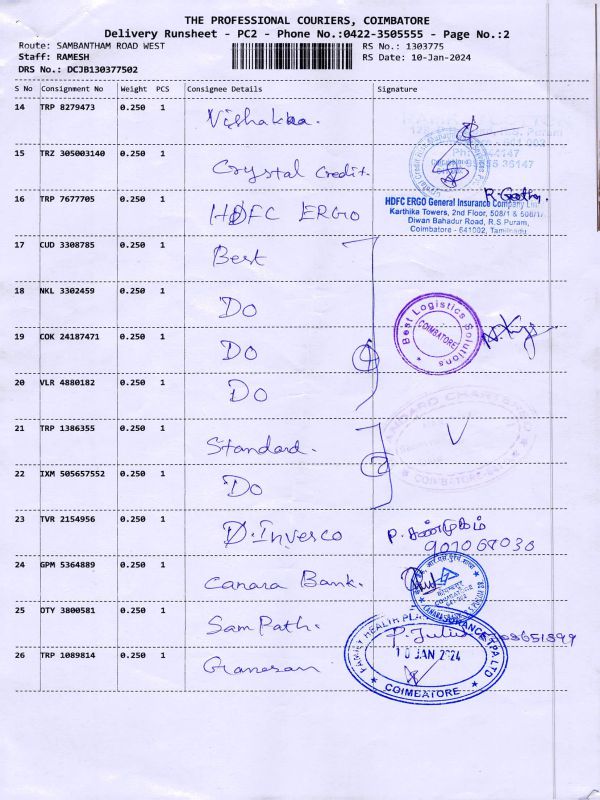 THE PROFESSIONAL COURIERS, COIMBATORE
Delivery Runsheet - PC2 - Phone No.:0422-3505555 - Page No.:2
Route: SAMBANTHAM ROAD WEST
RS No.: 1303775
Staff: RAMESH
RS Date: 10-Jan-2024
DRS No.: DCJB130377502
S No Consignment No Weight PCS Consignee Details Signature
14 TRP 8279473 0.250 1 Vishakha.
15 TRZ 305003140 0.250 1 Crystal Credit.
16 TRP 7677705 0.250 1 HDFC ERGO
HDFC ERGO General Insurance Company Ltd
Karthika Towers, 2nd Floor, 508/1 & 508/1A
Diwan Bahadur Road, R.S Puram,
Coimbatore - 641002, Tamilnadu
17 CUD 3308785 0.250 1 Best
18 NKL 3302459 0.250 1 Do
19 COK 24187471 0.250 1 Do
Best Logistics Solutions
COIMBATORE
④
20 VLR 4880182 0.250 1 Do
21 TRP 1386355 0.250 1 Standard.
STANDARD CHARTERED
COIMBATORE
②
22 IXM 505657552 0.250 1 Do
23 TVR 2154956 0.250 1 D.Invesco
P. சண்முகம்
24 GPM 5364889 0.250 1 Canara Bank.
25 OTY 3800581 0.250 1 Sam Path.
26 TRP 1089814 0.250 1 Ganesan
FAMILY HEALTH PLAN INSURANCE TPA LTD
10 JAN 2024
COIMBATORE